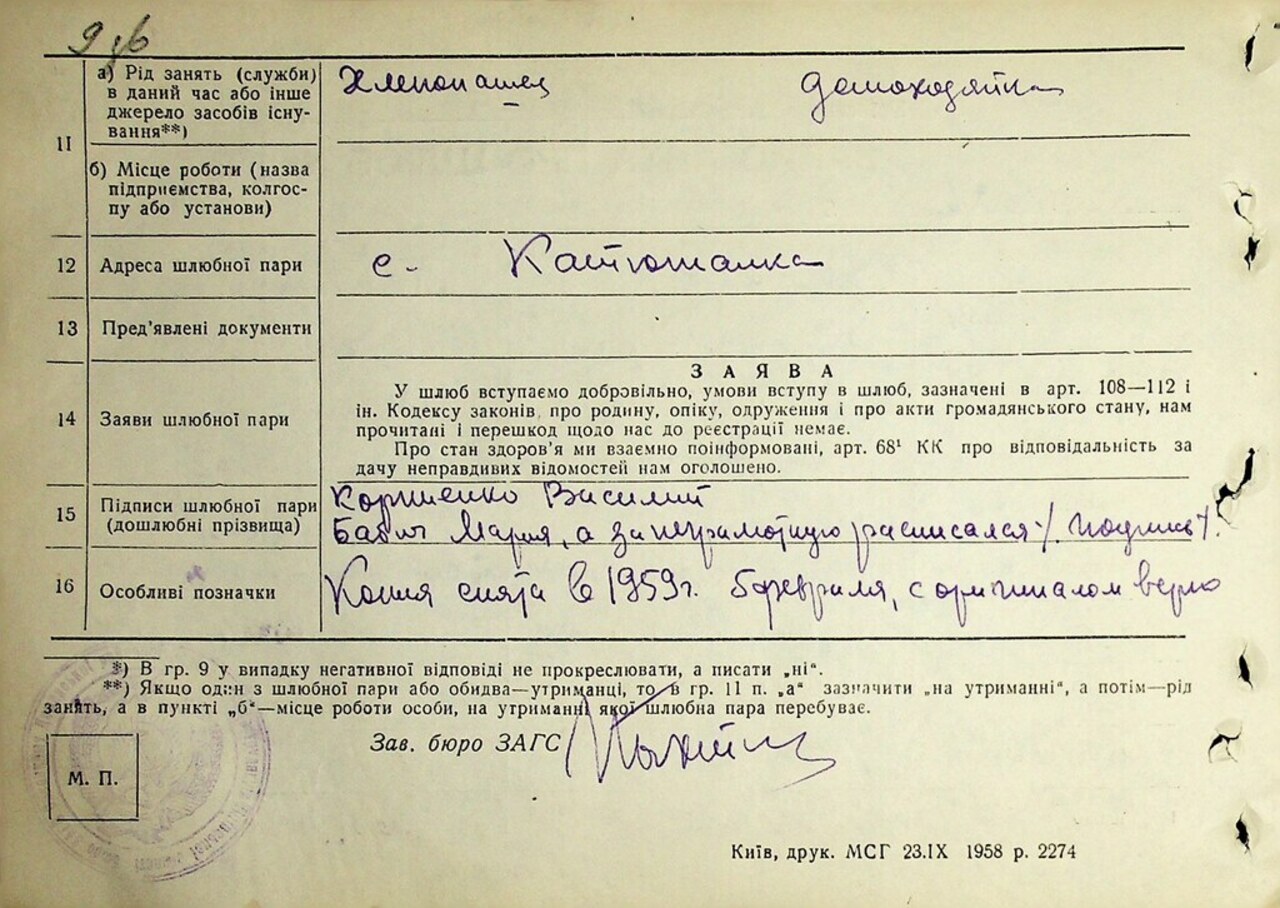 11
а) Рід занять (служби) в даний час або інше джерело засобів існування**)
Хлепопашец домохозяйка
б) Місце роботи (назва підприємства, колгоспу або установи)
12 Адреса шлюбної пари
с. Катюжанка
13 Пред’явлені документи
14 Заяви шлюбної пари
ЗАЯВА
У шлюб вступаємо добровільно, умови вступу в шлюб, зазначені в арт. 108—112 і
ін. Кодексу законів про родину, опіку, одруження і про акти громадянського стану, нам
прочитані і перешкод щодо нас до реєстрації немає.
Про стан здоров’я ми взаємно поінформовані, арт. 68¹ КК про відповідальність за
дачу неправдивих відомостей нам оголошено.
15 Підписи шлюбної пари
(дошлюбні прізвища)
Корниенко Василий
Бабич Мария, а за неграмотную расписался /подпись/.
16 Особливі позначки
Копия снята в 1959г. февраля, с оригиналом верно
*) В гр. 9 у випадку негативної відповіді не прокреслювати, а писати „ні“.
**) Якщо один з шлюбної пари або обидва—утриманці, то в гр. 11 п. „а“ зазначити „на утриманні“, а потім—рід
занять, а в пункті „б“—місце роботи особи, на утриманні якої шлюбна пара перебуває.
Зав. бюро ЗАГС
М. П.
Київ, друк. МСГ 23.IX 1958 р. 2274